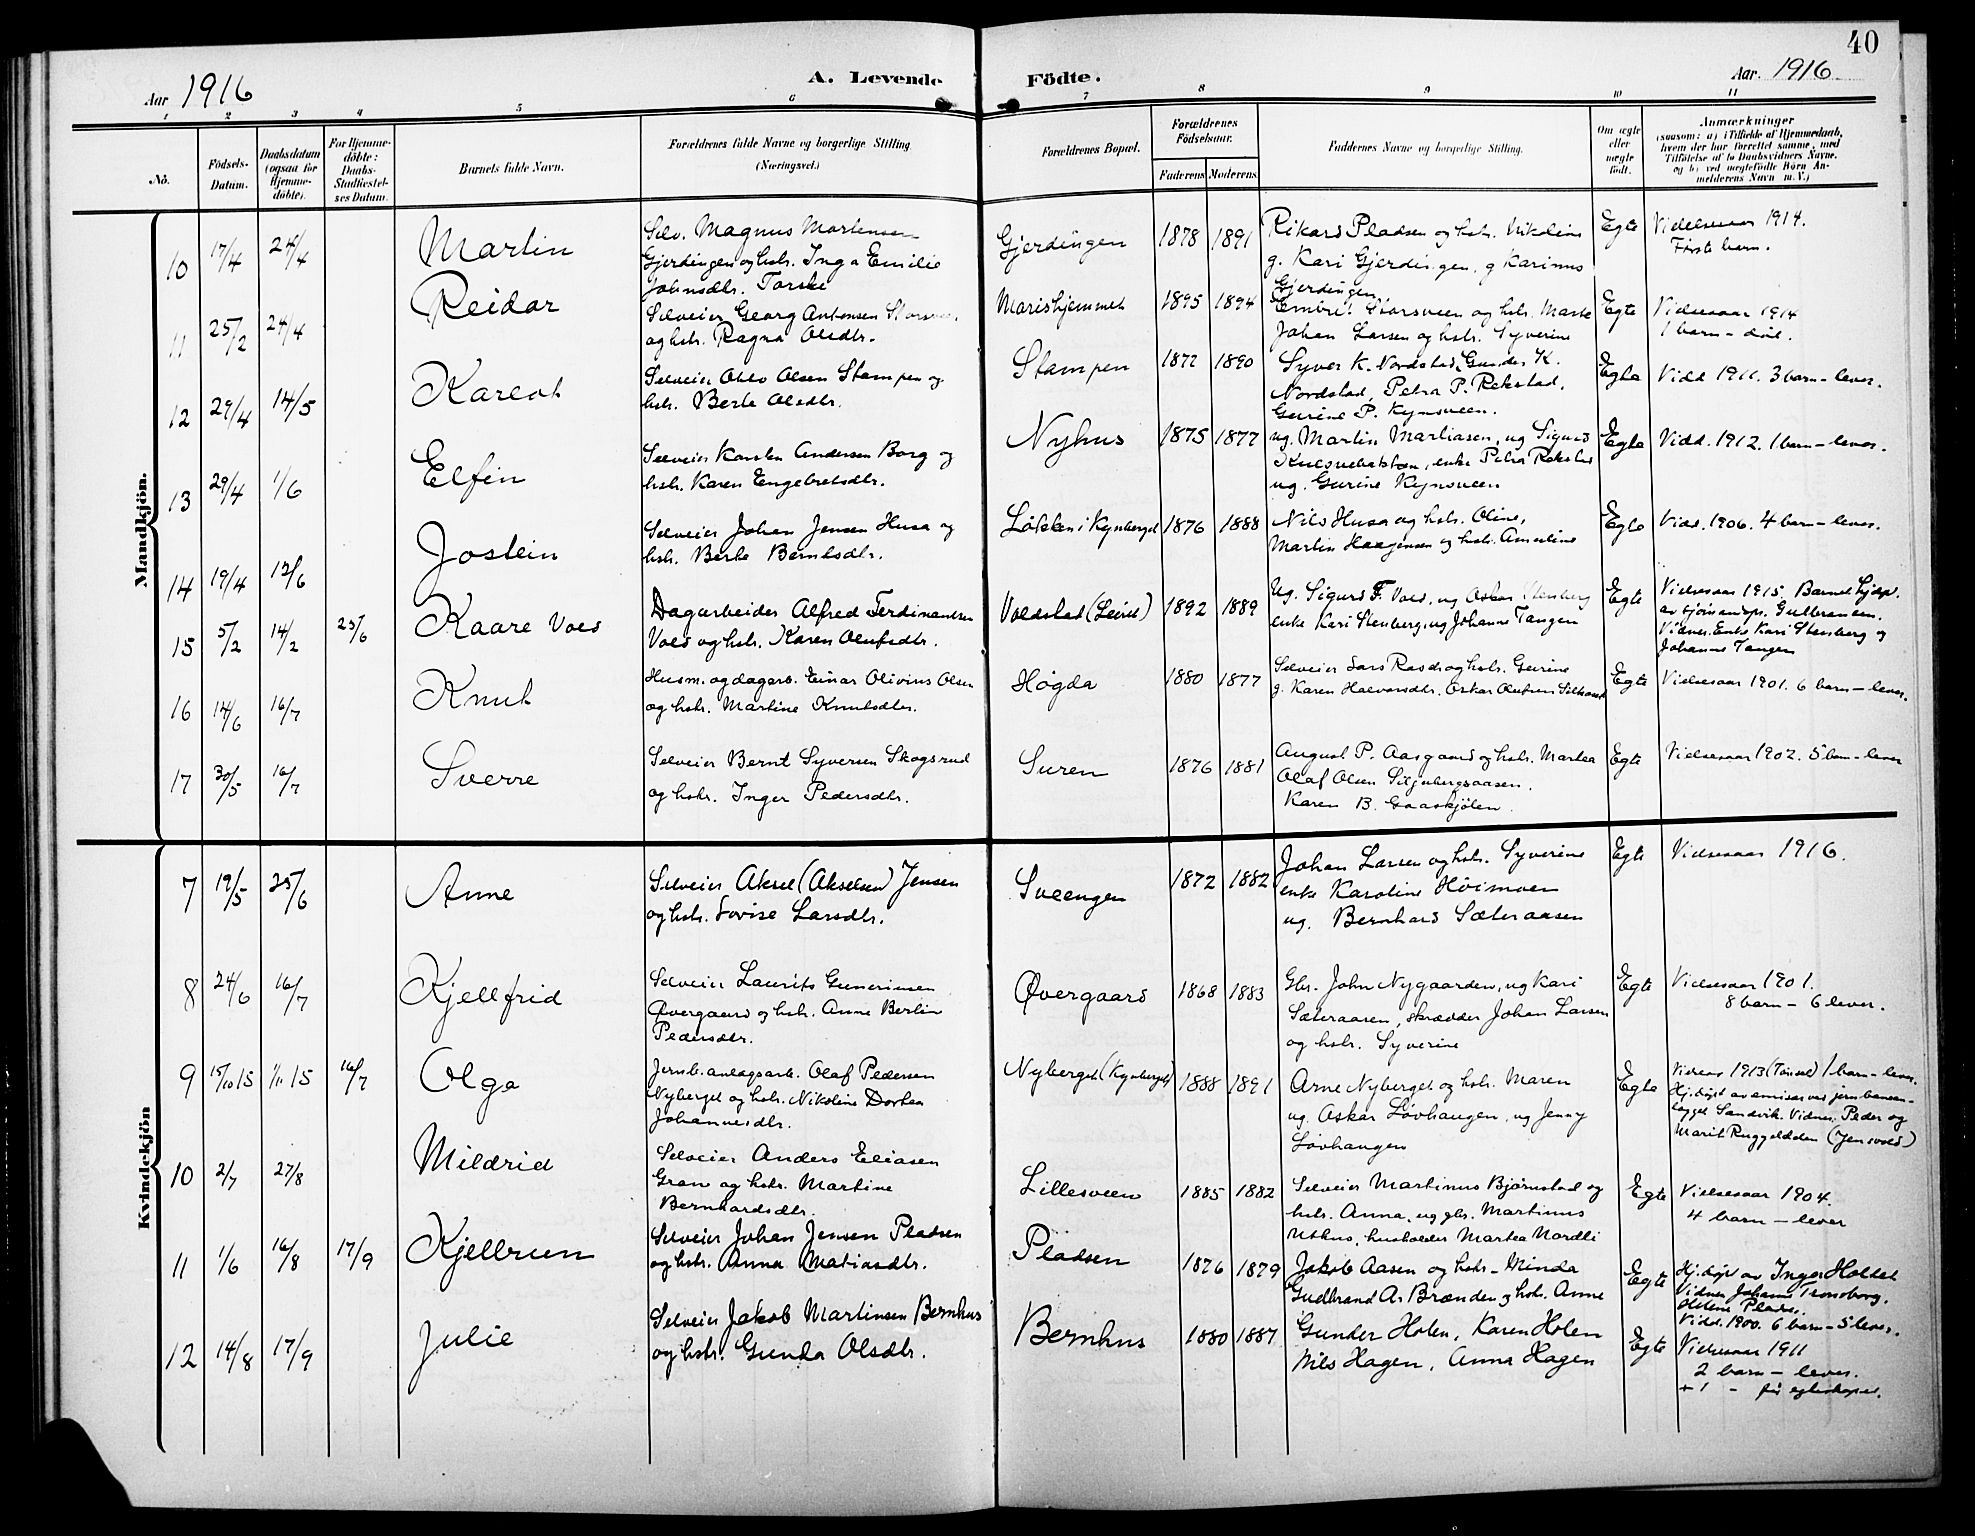 40
Aar 1916
A. Levende Födte.
Aar 1916
1 2 3 4 5 6 7 8 9 10 11
No.
Födsels-Datum.
Daabsdatum (ogsaa for Hjemme-döbte).
For Hjemme-döbte: Daabs-Stadfæstel-ses Datum.
Barnets fulde Navn.
Forældrenes fulde Navne og borgerlige Stilling (Næringsvei.)
Forældrenes Bopæl.
Forældrenes Födselsaar.
Faderens Moderens
Faddernes Navne og borgerlige Stilling.
Om ægte eller uægte födt.
Anmærkninger
(saasom: a) i Tilfælde af Hjemmedaab,
hvem der har forrettet samme, med
Tilföielse af to Daabsvidners Navne,
og b) ved uægtefödte Börn An-
melderens Navn m. V.)
Mandkjön.
10 17/4 24/4 Martin
Selv. Magnus Martensen
Gjerdingen og hstr. Inga Emilie
Johnsdtr. Torske
Gjerdingen 1878 1891
Rikard Pladsen og hstr. Nikoline
g. Kari Gjerdingen, g Karinus
Gjerdingen
Egte
Vielsesaar 1914.
Første barn.
11 25/2 24/4 Reidar
Selveier Georg Antonsen
og hstr. Ragna Olsdtr.
Marishjemmet 1895 1894
Embret Storsveen og hstr. Marte
Johan Larsen og hstr. Syverine
Egte
Vielsesaar 1914
1 barn – død.
12 29/4 14/5 Kareot
Selveier Olav Olsen Stampen og
hstr. Berte Olsdtr.
Stampen 1872 1890
Syver K. Nordstad, Gunder K.
Nordstad, Petra P. Rekstad,
Gurine P. Kynsveen.
Egte
Vidd 1911. 3 barn – lever.
13 29/4 1/6 Elfin
Selveier Karsten Andersen Borg og
hstr. Karen Engebretsdtr.
Nyhus 1875 1877
ug. Martin Martiasen, ug Sigurd
enke Petra Rekstad
ug. Gurine Kynsveen
Egte
Vidd. 1912. 1 barn – lever.
14 19/4 12/6 Jostein
Selveier Johan Jensen Husa og
hstr. Berte Berntsdtr.
Løkken i Kynberget 1876 1888
Nils Husa og hstr. Oline,
Martin Haagensen og hstr. Amerline
Egte
Vid. 1906. 4 barn – lever.
15 5/2 14/2 25/6 Kaare Vold
Dagarbeider Alfred Ferdinandsen
Vold og hstr. Karen Olufsdtr.
Voldstad (Leiret) 1892 1889
Ug. Sigurd F. Vold, ug Oskar Stenberg
enke Kari Stenberg, ug Johanne Tangen
Egte
Vielsesaar 1915. Barnet hjdøpt
av Gulbransen.
Vidner. Enke Kari Stenberg og
Johanne Tangen
16 14/6 16/7 Knut
Husm. og dagarb. Einar Olivius Olsen
og hstr. Martine Knutsdtr.
Høgda 1880 1877
Selveier Lars Rasd og hstr. Gurine
g. Karen Halvorsdtr. Oskar Olufsen
Egte
Vielsesaar 1901. 6 barn – lever.
17 30/5 16/7 Sverre
Selveier Bernt Syversen Skogsrud
og hstr. Inger Pedersdtr.
Suren 1876 1881
August P. Aasgaard og hstr. Martea
Olaf Olsen Stjernbergsaasen.
Karen B. Gaaskjølen.
Egte
Vielsesaar 1902. 5 barn – lever
Kvindekjön
7 19/5 25/6 Anne
Selveier Aksel (Akselsen) Jensen
og hstr. Lovise Larsdtr.
Sveengen 1872 1882
Johan Larsen og hstr. Syverine
enke Karoline Høimoen
ug. Bernhard Sæteraasen
Egte
Vielsesaar 1916.
8 24/6 16/7 Kjellfrid
Selveier Laurits Gunerinsen
Øvergaard og hstr. Anne Berlin
Pedersdtr.
Øvergaard 1868 1883
Gbr. John Nygaarden, ug Kari
Sæteraasen, skrædder Johan Larsen
og hstr. Syverine
Egte
Vielsesaar 1901.
8 barn – 6 lever.
9 15/10 15 1/11 15 16/7 Olga
Jernb. anlægsarb. Olaf Pedersen
Nyberget og hstr. Nikoline Dortea
Johannesdtr.
Nyberget (Kynberget) 1888 1891
Arne Nyberget og hstr. Maren
ug. Oskar Løvhaugen, ug Jenny
Løvhaugen
Egte
Vielsesaar 1913 (Tønset) 1 barn – lever.
Hj.døpt av emissær ved jernbanean-
lægget Sandvik. Vidner. Peder og
Marit Ruggeldalen (Jensvold)
10 2/7 27/8 Mildrid
Selveier Anders Eliasen
Gran og hstr. Martine
Bernhardsdtr.
Lillesveen 1885 1882
Selveier Martinus Bjørnstad og
hstr. Anna, ug gbr. Martinus
Uthus, husholder Martea Nordli
Egte
Vielsesaar 1904.
4 barn – lever
11 1/6 16/8 17/9 Kjellrun
Selveier Johan Jensen Pladsen
og hstr. Anna Matiasdtr.
Pladsen 1876 1879
Jakob Aasen og hstr – Minda
Gudbrand A. Brænden og hstr. Anne
Egte
Hj.døpt av Inger Holtet
Vidner Johanne Tronsborg.
Helene Pladsen.
Vid. 1900. 6 barn – 5 lever.
12 14/8 17/9 Julie
Selveier Jakob Martinsen Bernhus
og hstr. Gunda Olsdtr.
Bernhus 1880 1887
Gunder Holen, Karen Holen
Nils Hagen, Anna Hagen
Egte
Vielsesaar 1911
2 barn – lever.
+ 1 – før egteskapet.